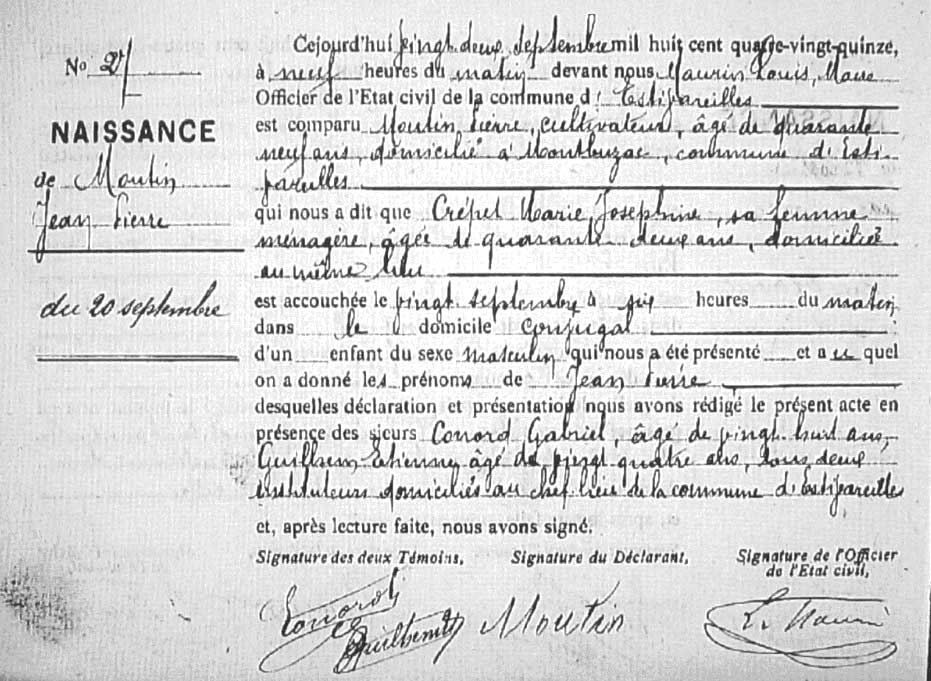 No 27
NAISSANCE
de Moutin
Jean Pierre
du 20 septembre
Cejourd'hui vingt deux septembre mil huit cent quatre-vingt-quinze,
à neuf heures du matin devant nous Maurin Louis, Maire
Officier de l'Etat civil de la commune d' Estipareilles
est comparu Moutin Pierre, cultivateur, âgé de quarante
neuf ans, domicilié à Montbuzac, commune d'Esti-
pareilles
qui nous a dit que Crépet Marie Joséphine, sa femme
ménagère, âgée de quarante deux ans, domiciliée
au même lieu
est accouchée le vingt septembre à six heures du matin
dans le domicile conjugal
d'un enfant du sexe masculin qui nous a été présenté et au quel
on a donné les prénoms de Jean Pierre
desquelles déclaration et présentation nous avons rédigé le présent acte en
présence des sieurs Conord Gabriel, âgé de vingt huit ans,
Guilhem Etienne âgé de vingt quatre ans, tous deux
instituteurs domiciliés au chef lieu de la commune d'Estipareilles
et, après lecture faite, nous avons signé.
Signature des deux Témoins, Signature du Déclarant, Signature de l'Officier
de l'Etat civil,
Conord Moutin L. Maurin
Guilhem